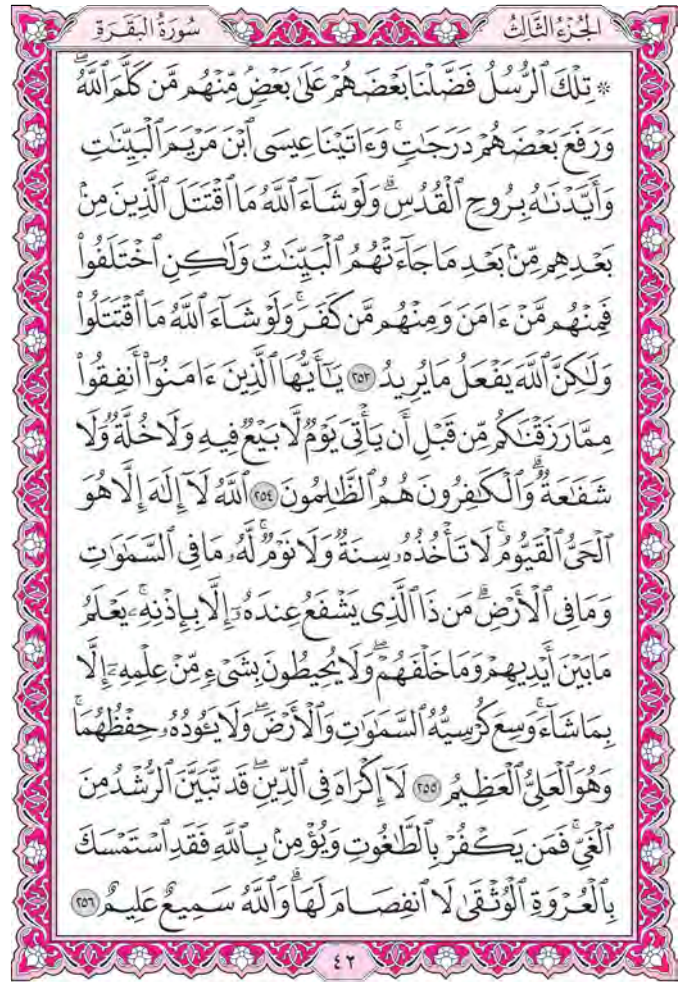 الجُزْءُ الثَّالِثُ
سُورَةُ البَقَرَةِ
۞ تِلْكَ ٱلرُّسُلُ فَضَّلْنَا بَعْضَهُمْ عَلَىٰ بَعْضٍۢ مِّنْهُم مَّن كَلَّمَ ٱللَّهُۖ
وَرَفَعَ بَعْضَهُمْ دَرَجَٰتٍۚ وَءَاتَيْنَا عِيسَى ٱبْنَ مَرْيَمَ ٱلْبَيِّنَٰتِ
وَأَيَّدْنَٰهُ بِرُوحِ ٱلْقُدُسِۗ وَلَوْ شَآءَ ٱللَّهُ مَا ٱقْتَتَلَ ٱلَّذِينَ مِنۢ
بَعْدِهِم مِّنۢ بَعْدِ مَا جَآءَتْهُمُ ٱلْبَيِّنَٰتُ وَلَٰكِنِ ٱخْتَلَفُوا۟
فَمِنْهُم مَّنْ ءَامَنَ وَمِنْهُم مَّن كَفَرَۚ وَلَوْ شَآءَ ٱللَّهُ مَا ٱقْتَتَلُوا۟
وَلَٰكِنَّ ٱللَّهَ يَفْعَلُ مَا يُرِيدُ ٢٥٣ يَٰٓأَيُّهَا ٱلَّذِينَ ءَامَنُوٓا۟ أَنفِقُوا۟
مِمَّا رَزَقْنَٰكُم مِّن قَبْلِ أَن يَأْتِىَ يَوْمٌ لَّا بَيْعٌ فِيهِ وَلَا خُلَّةٌ وَلَا
شَفَٰعَةٌۗ وَٱلْكَٰفِرُونَ هُمُ ٱلظَّٰلِمُونَ ٢٥٤ ٱللَّهُ لَآ إِلَٰهَ إِلَّا هُوَ
ٱلْحَىُّ ٱلْقَيُّومُۚ لَا تَأْخُذُهُۥ سِنَةٌ وَلَا نَوْمٌۚ لَّهُۥ مَا فِى ٱلسَّمَٰوَٰتِ
وَمَا فِى ٱلْأَرْضِۗ مَن ذَا ٱلَّذِى يَشْفَعُ عِندَهُۥٓ إِلَّا بِإِذْنِهِۦۚ يَعْلَمُ
مَا بَيْنَ أَيْدِيهِمْ وَمَا خَلْفَهُمْۖ وَلَا يُحِيطُونَ بِشَىْءٍ مِّنْ عِلْمِهِۦٓ إِلَّا
بِمَا شَآءَۚ وَسِعَ كُرْسِيُّهُ ٱلسَّمَٰوَٰتِ وَٱلْأَرْضَۖ وَلَا يَـُٔودُهُۥ حِفْظُهُمَاۚ
وَهُوَ ٱلْعَلِىُّ ٱلْعَظِيمُ ٢٥٥ لَآ إِكْرَاهَ فِى ٱلدِّينِۖ قَد تَّبَيَّنَ ٱلرُّشْدُ مِنَ
ٱلْغَىِّۚ فَمَن يَكْفُرْ بِٱلطَّٰغُوتِ وَيُؤْمِنۢ بِٱللَّهِ فَقَدِ ٱسْتَمْسَكَ
بِٱلْعُرْوَةِ ٱلْوُثْقَىٰ لَا ٱنفِصَامَ لَهَاۗ وَٱللَّهُ سَمِيعٌ عَلِيمٌ ٢٥٦
٤٢